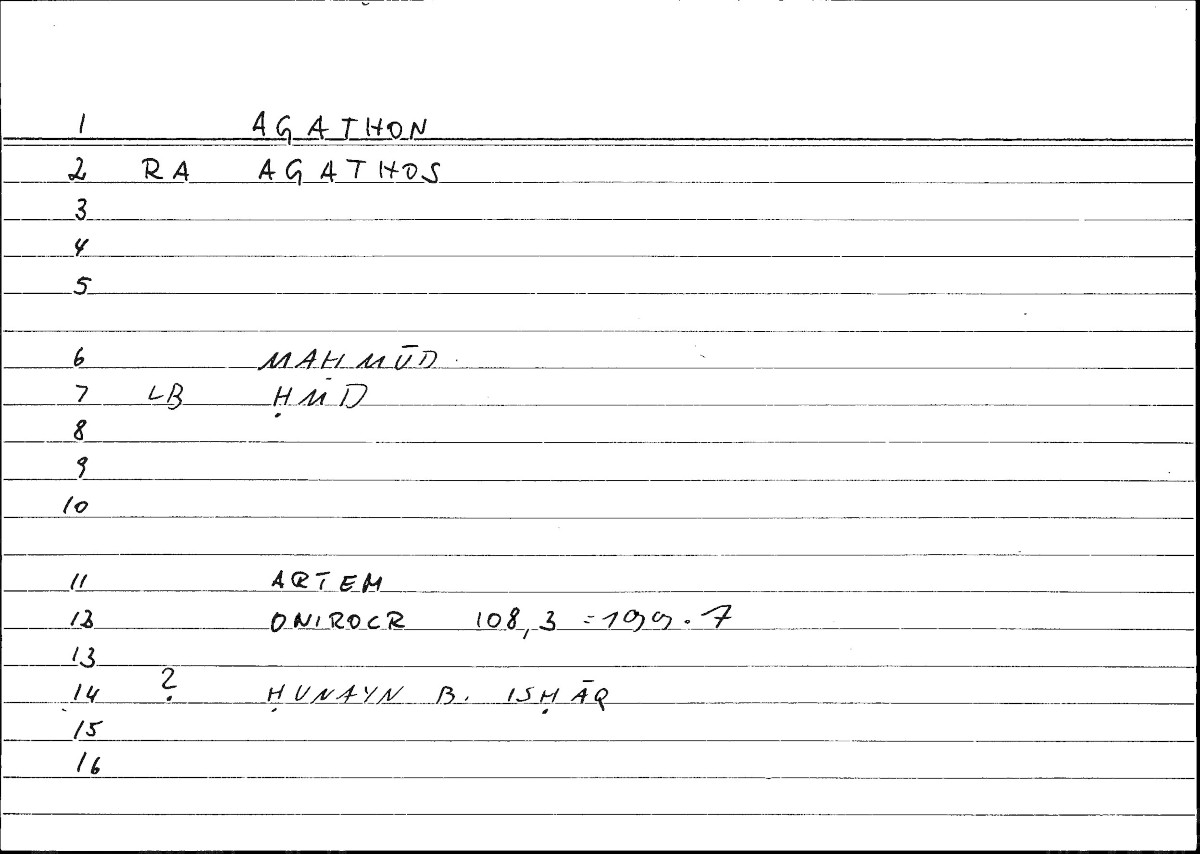 1 AGATHON
2 RA AGATHOS
3
4
5
6 MAHMŪD
7 LB ḤMD
8
9
10
11 ARTEM
12 ONIROCR 108,3 = 199.7
13
14 ? ḤUNAYN B. ISḤĀQ
15
16